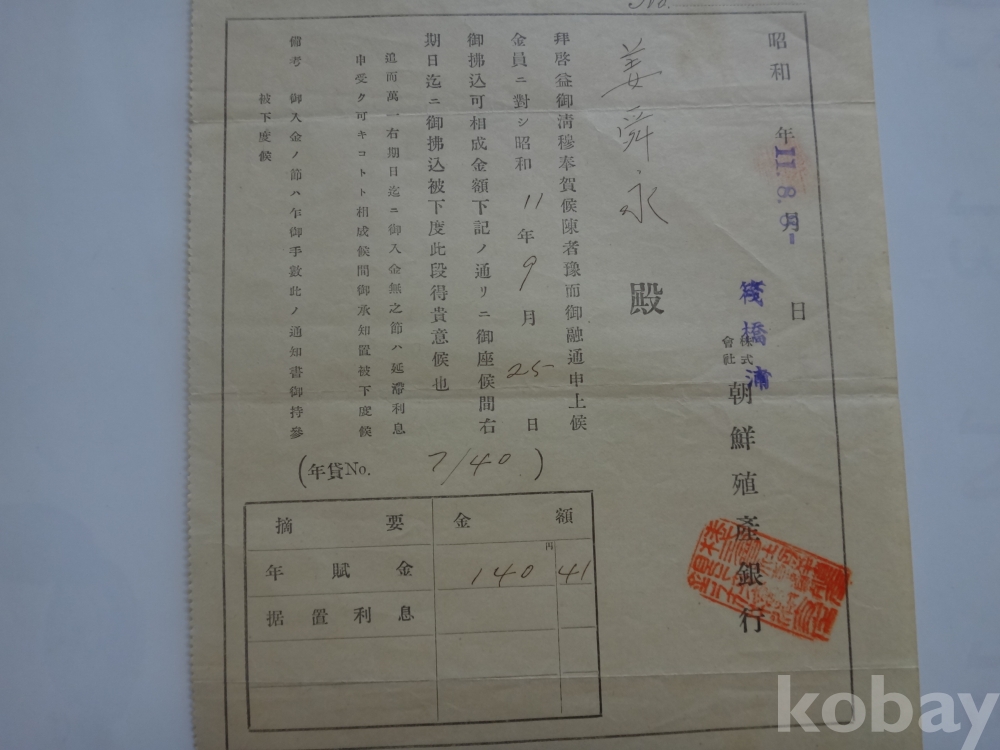 No.
昭和 年 月 日
11.8.8-
筏橋浦
株式會社朝鮮殖産銀行
姜舜永 殿
拜啓益御淸穆奉賀候陳者豫而御融通申上候
金員ニ對シ昭和 11 年 9 月 25 日
御拂込可相成金額下記ノ通リニ御座候間右
期日迄ニ御拂込被下度此段得貴意候也
追而萬一右期日迄ニ御入金無之節ハ延滯利息
申受タ可キコトト相成候間御承知置被下度候
備考 御入金ノ節ハ乍御手數此ノ通知書御持參
被下度候
(年貸No. 7/40)
摘要 金額
円
年賦金 140 41
据置利息
kobay